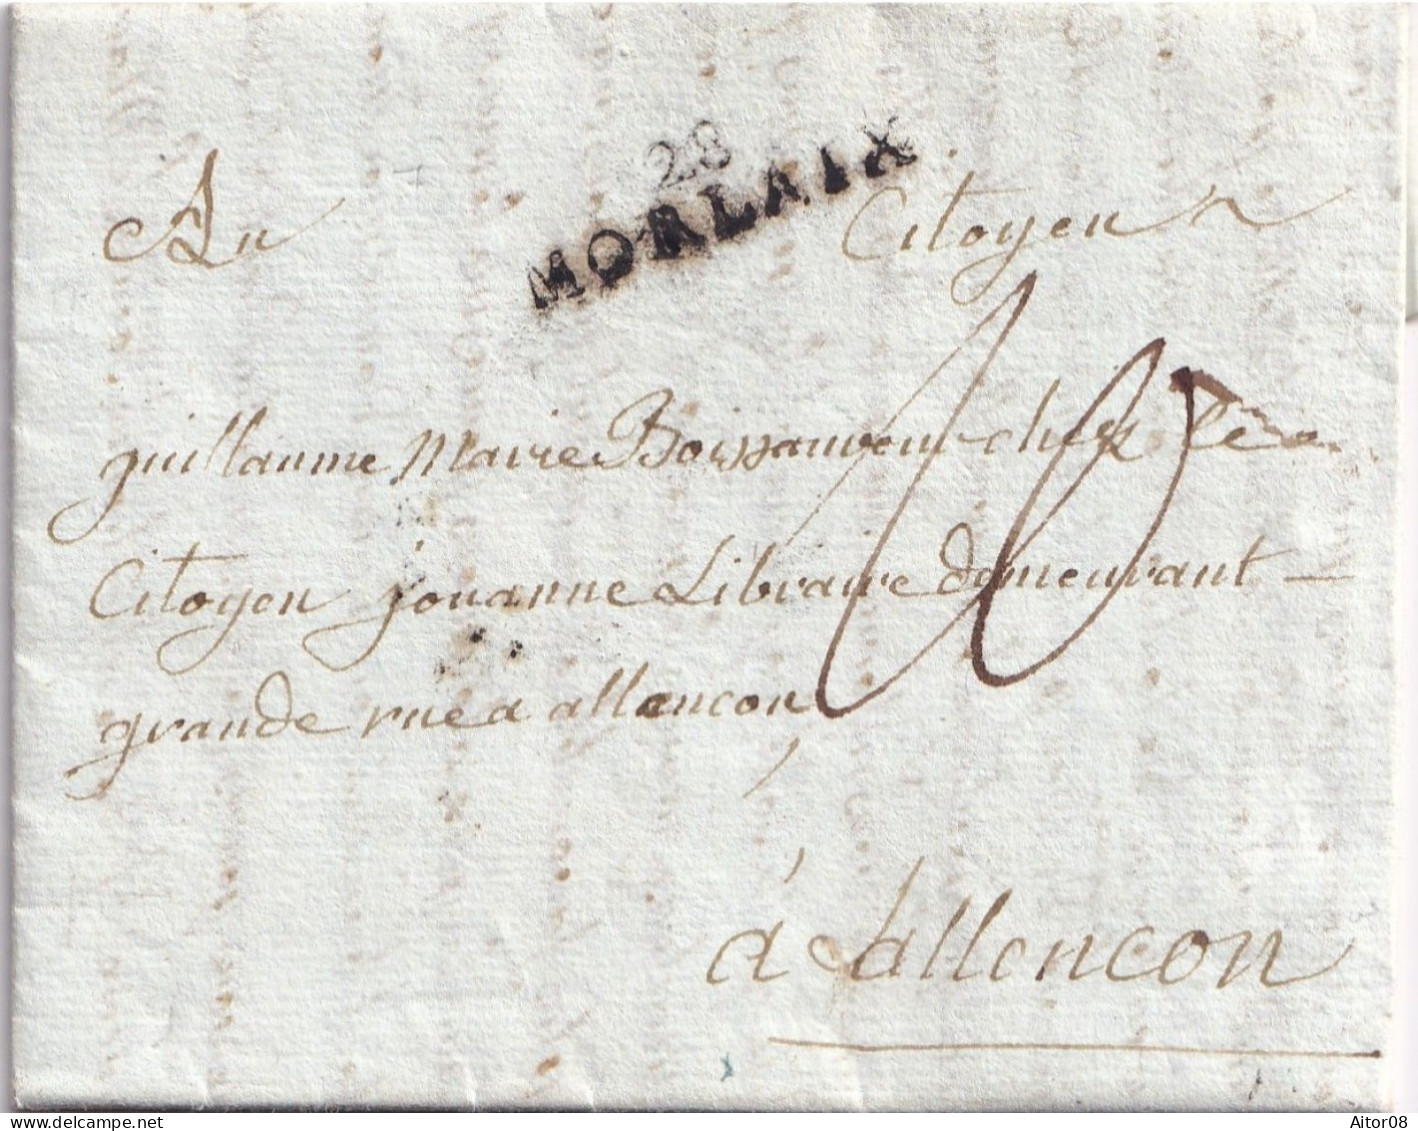 28
MORLAIX
Au Citoyen
guillaume Marie Boissauveur chez le
Citoyen jouanne Libraire demeurant
grande rue a allencon
10
á allencon
www.delcampe.net
Aitor08